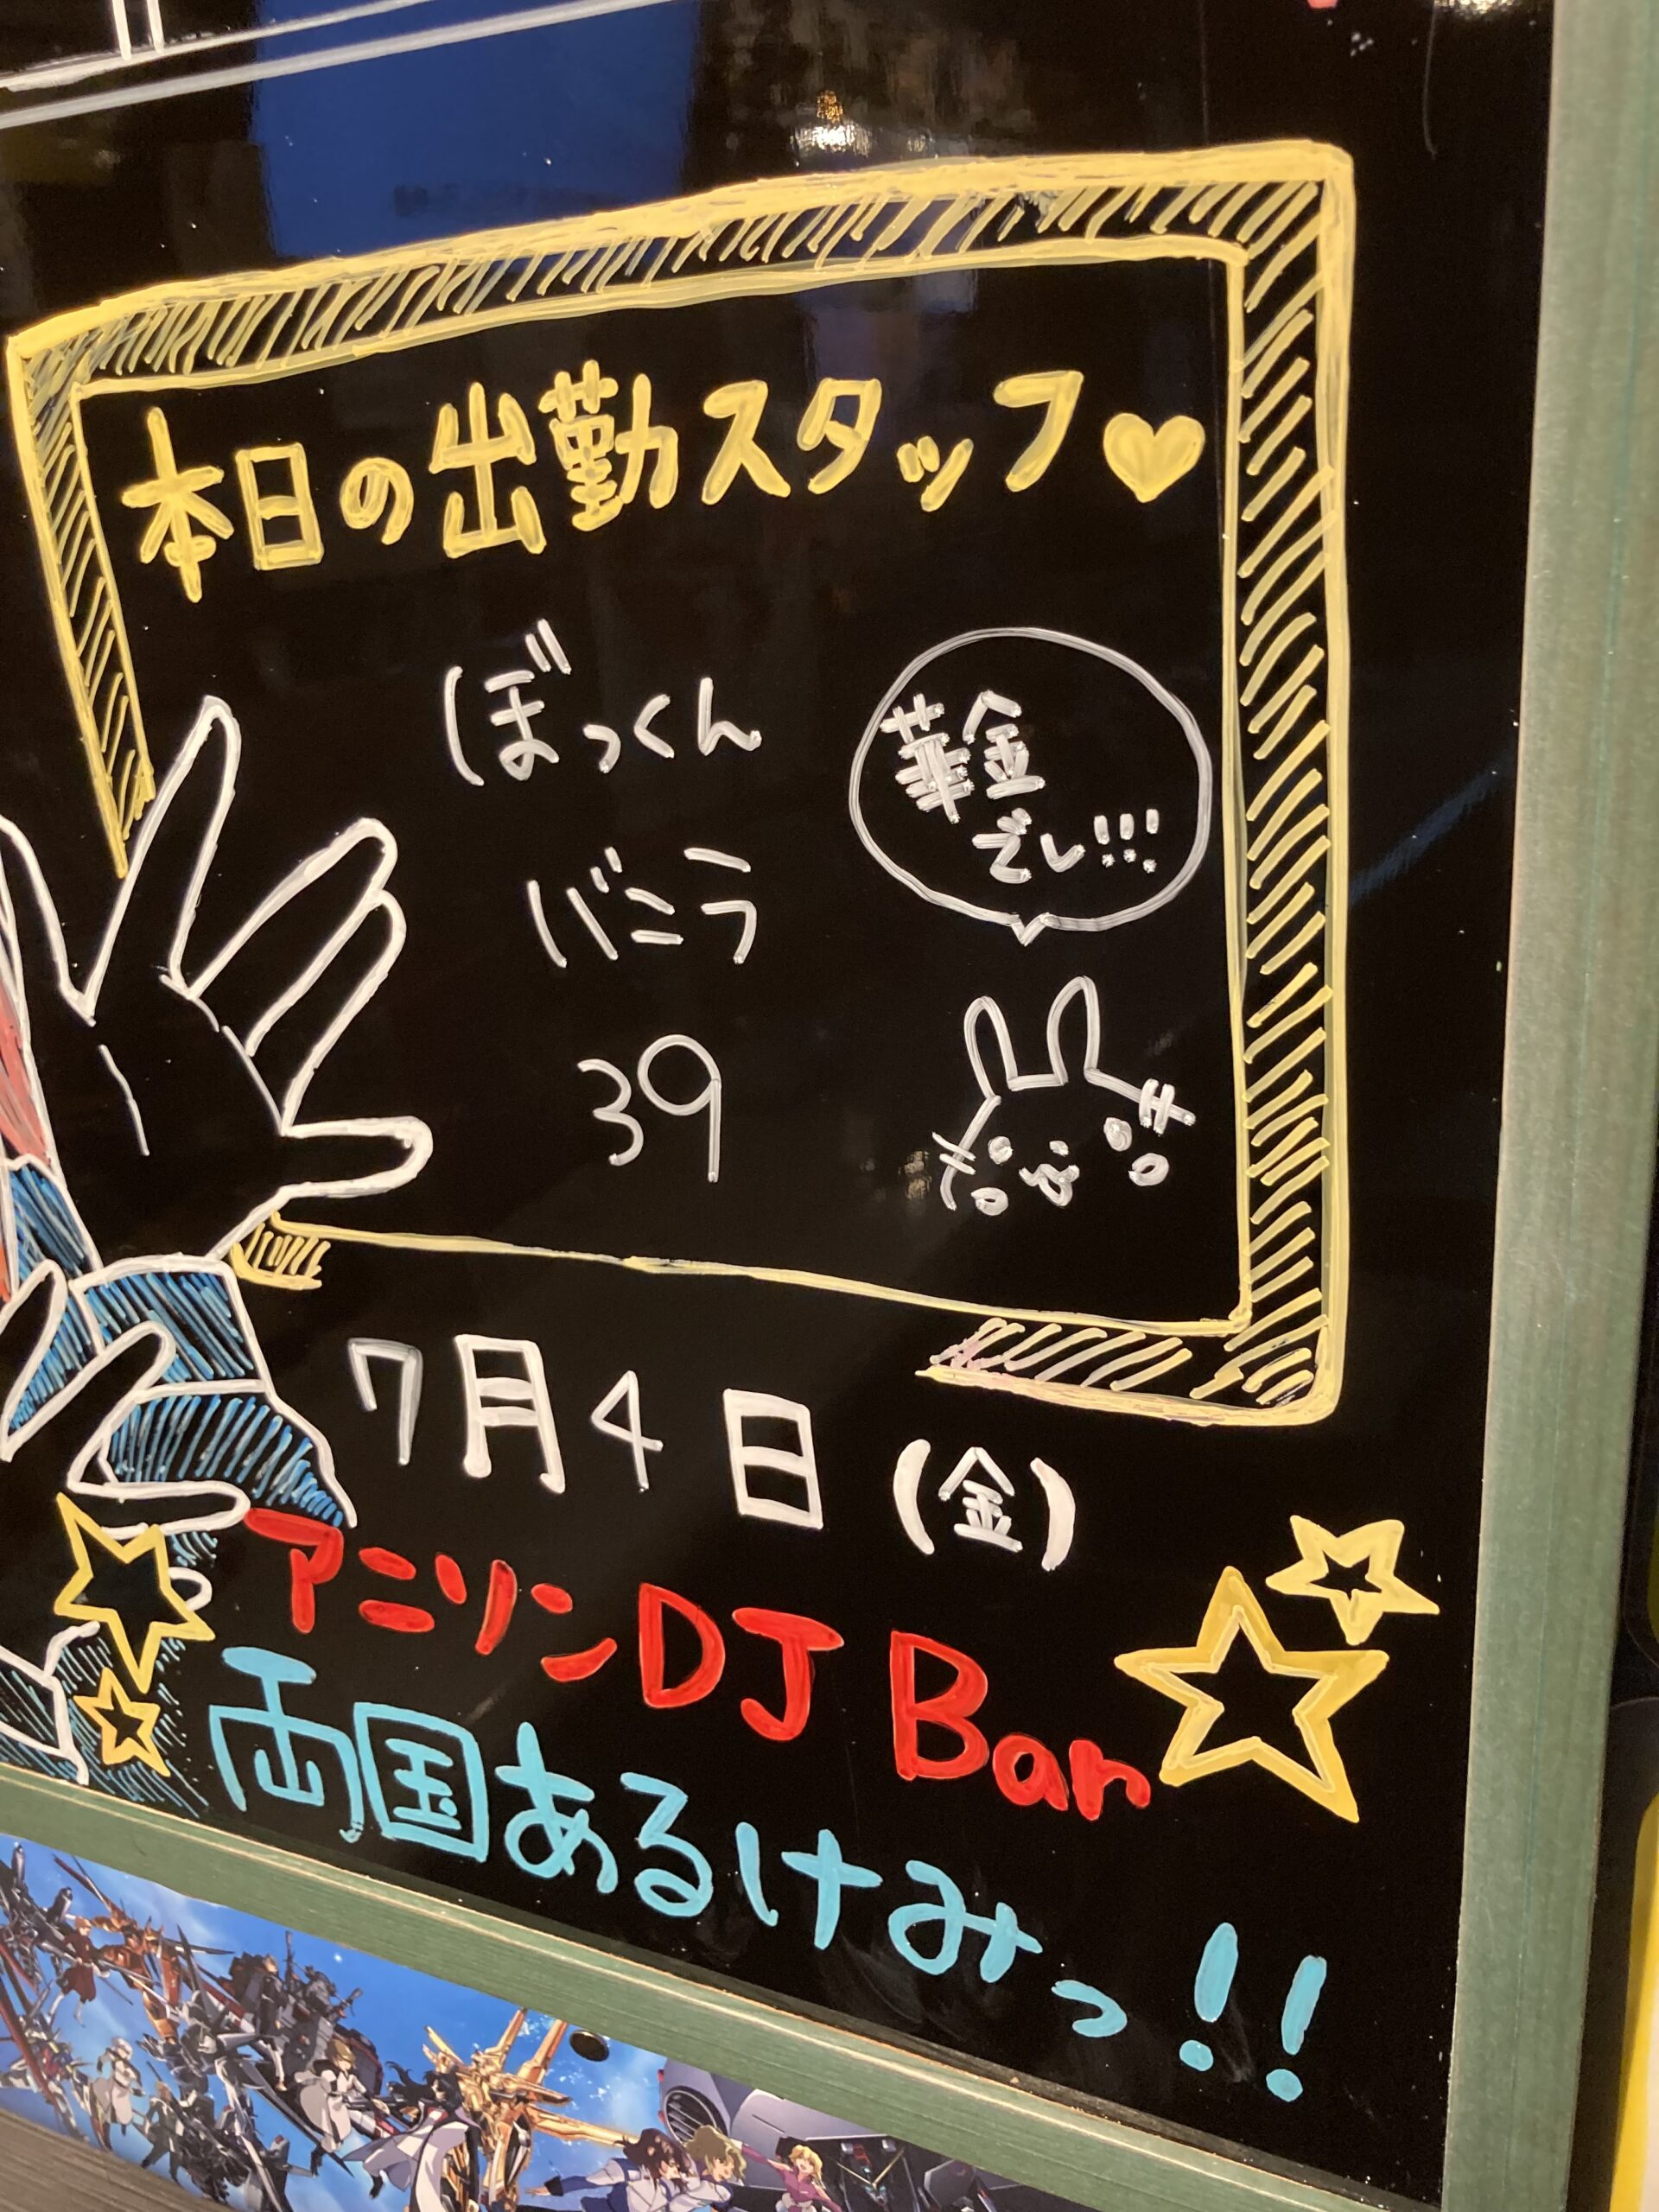 本日の出勤スタッフ♥
ぼっくん
バニラ
39
華金
でし!!!
7月4日(金)
アニソンDJ Bar
両国あるけみっ!!